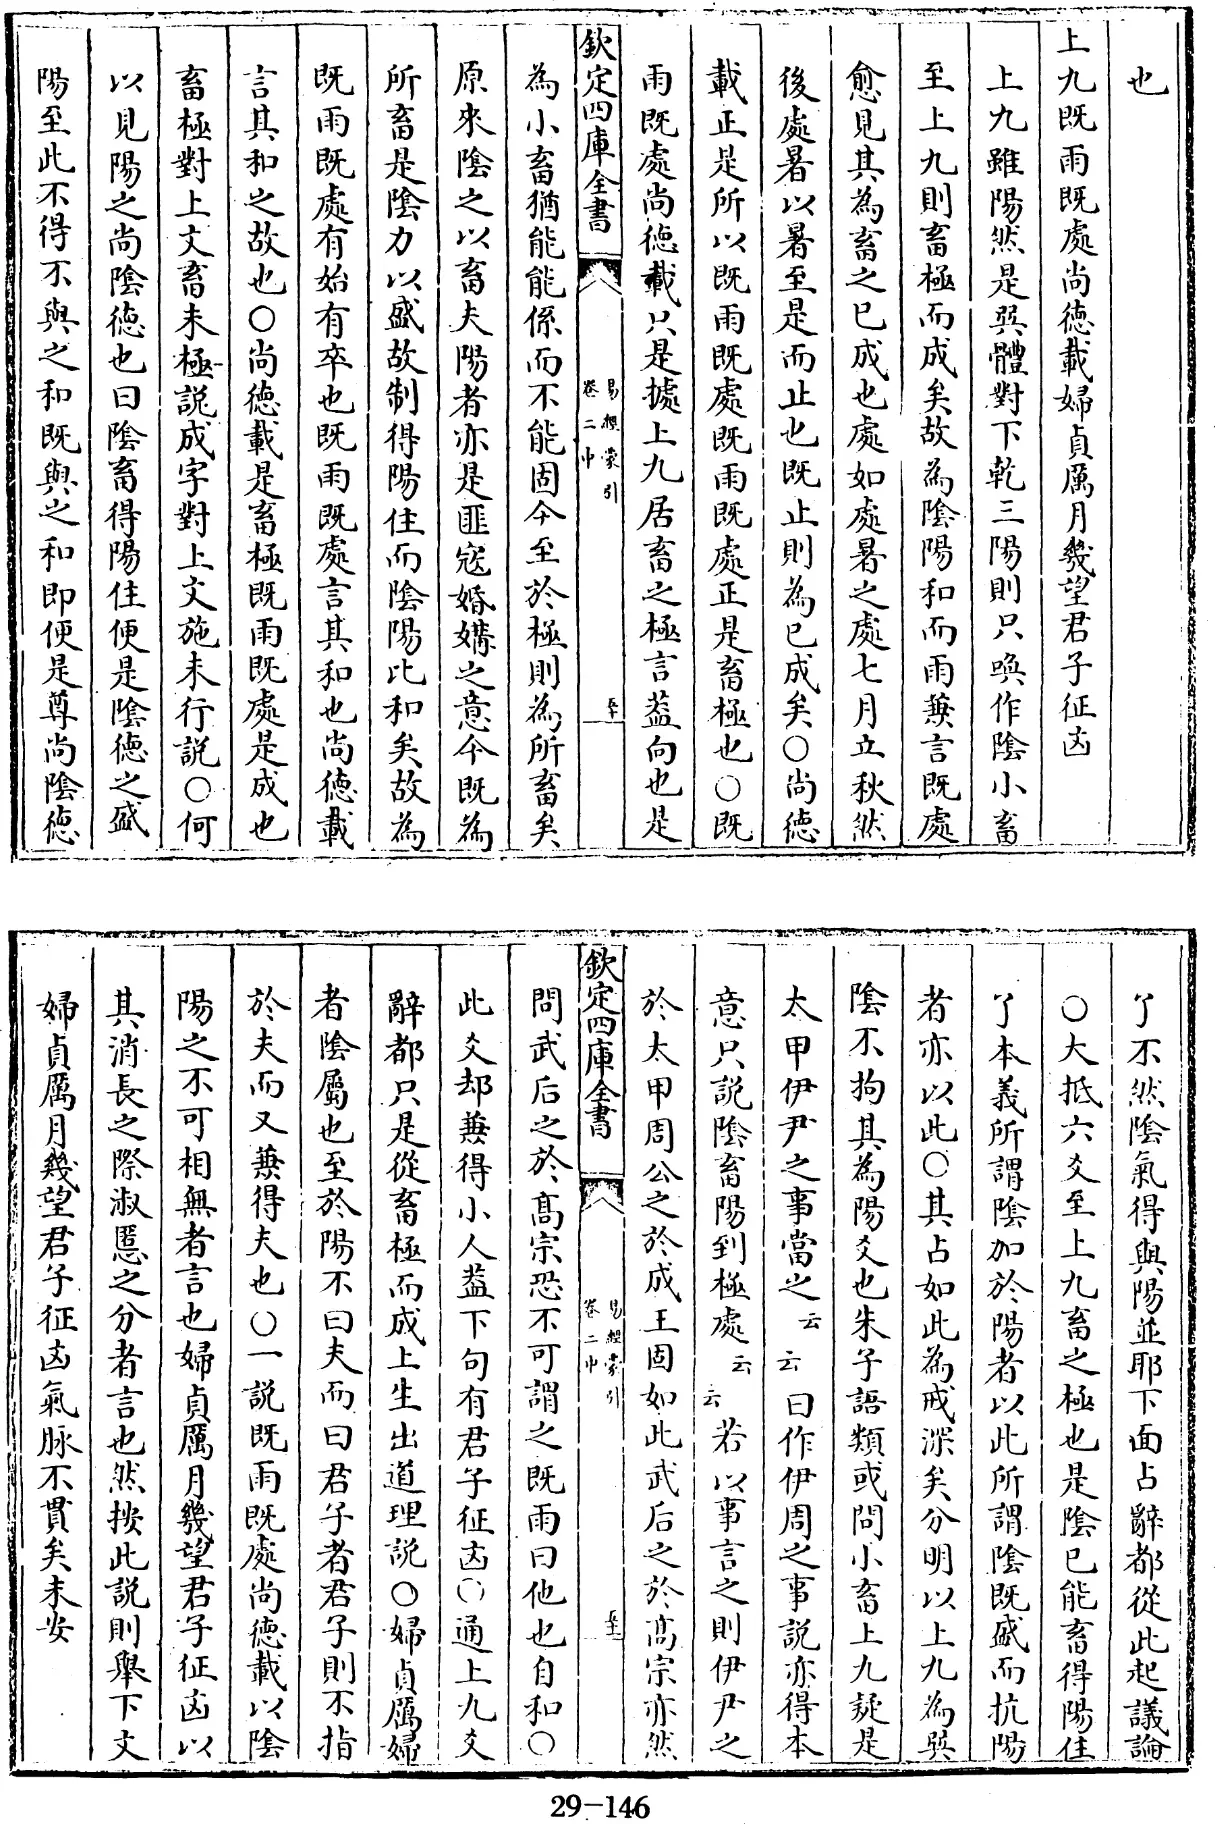 也
上九既雨既處尚德載婦貞厲月幾望君子征凶
上九雖陽然是巽體對下乾三陽則只喚作陰小畜
至上九則畜極而成矣故為陰陽和而雨兼言既處
愈見其為畜之已成也處如處暑之處七月立秋然
後處暑以暑至是而止也既止則為已成矣○尚德
載正是所以既雨既處既雨既處正是畜極也○既
雨既處尚德載只是據上九居畜之極言葢向也是
欽定四庫全書
易經蒙引
卷二中
五十
為小畜猶能能係而不能固今至於極則為所畜矣
原來陰之以畜夫陽者亦是匪寇婚媾之意今既為
所畜是陰力以盛故制得陽住而陰陽比和矣故為
既雨既處有始有卒也既雨既處言其和也尚德載
言其和之故也○尚德載是畜極既雨既處是成也
畜極對上文畜未極說成字對上文施未行說○何
以見陽之尚陰德也曰陰畜得陽住便是陰德之盛
陽至此不得不與之和既與之和即便是尊尚陰德
了不然陰氣得與陽並耶下面占辭都從此起議論
○大抵六爻至上九畜之極也是陰已能畜得陽住
了本義所謂陰加於陽者以此所謂陰既盛而抗陽
者亦以此○其占如此為戒深矣分明以上九為巽
陰不拘其為陽爻也朱子語類或問小畜上九疑是
太甲伊尹之事當之云云曰作伊周之事說亦得本
意只說陰畜陽到極處云云若以事言之則伊尹之
於太甲周公之於成王固如此武后之於高宗亦然
欽定四庫全書
易經蒙引
卷二中
五十一
問武后之於高宗恐不可謂之既雨曰他也自和○
此爻却兼得小人葢下句有君子征凶○通上九爻
辭都只是從畜極而成上生出道理說○婦貞厲婦
者陰屬也至於陽不曰夫而曰君子者君子則不指
於夫而又兼得夫也○一說既雨既處尚德載以陰
陽之不可相無者言也婦貞厲月幾望君子征凶以
其消長之際淑慝之分者言也然按此說則舉下文
婦貞厲月幾望君子征凶氣脉不貫矣未安
29-146